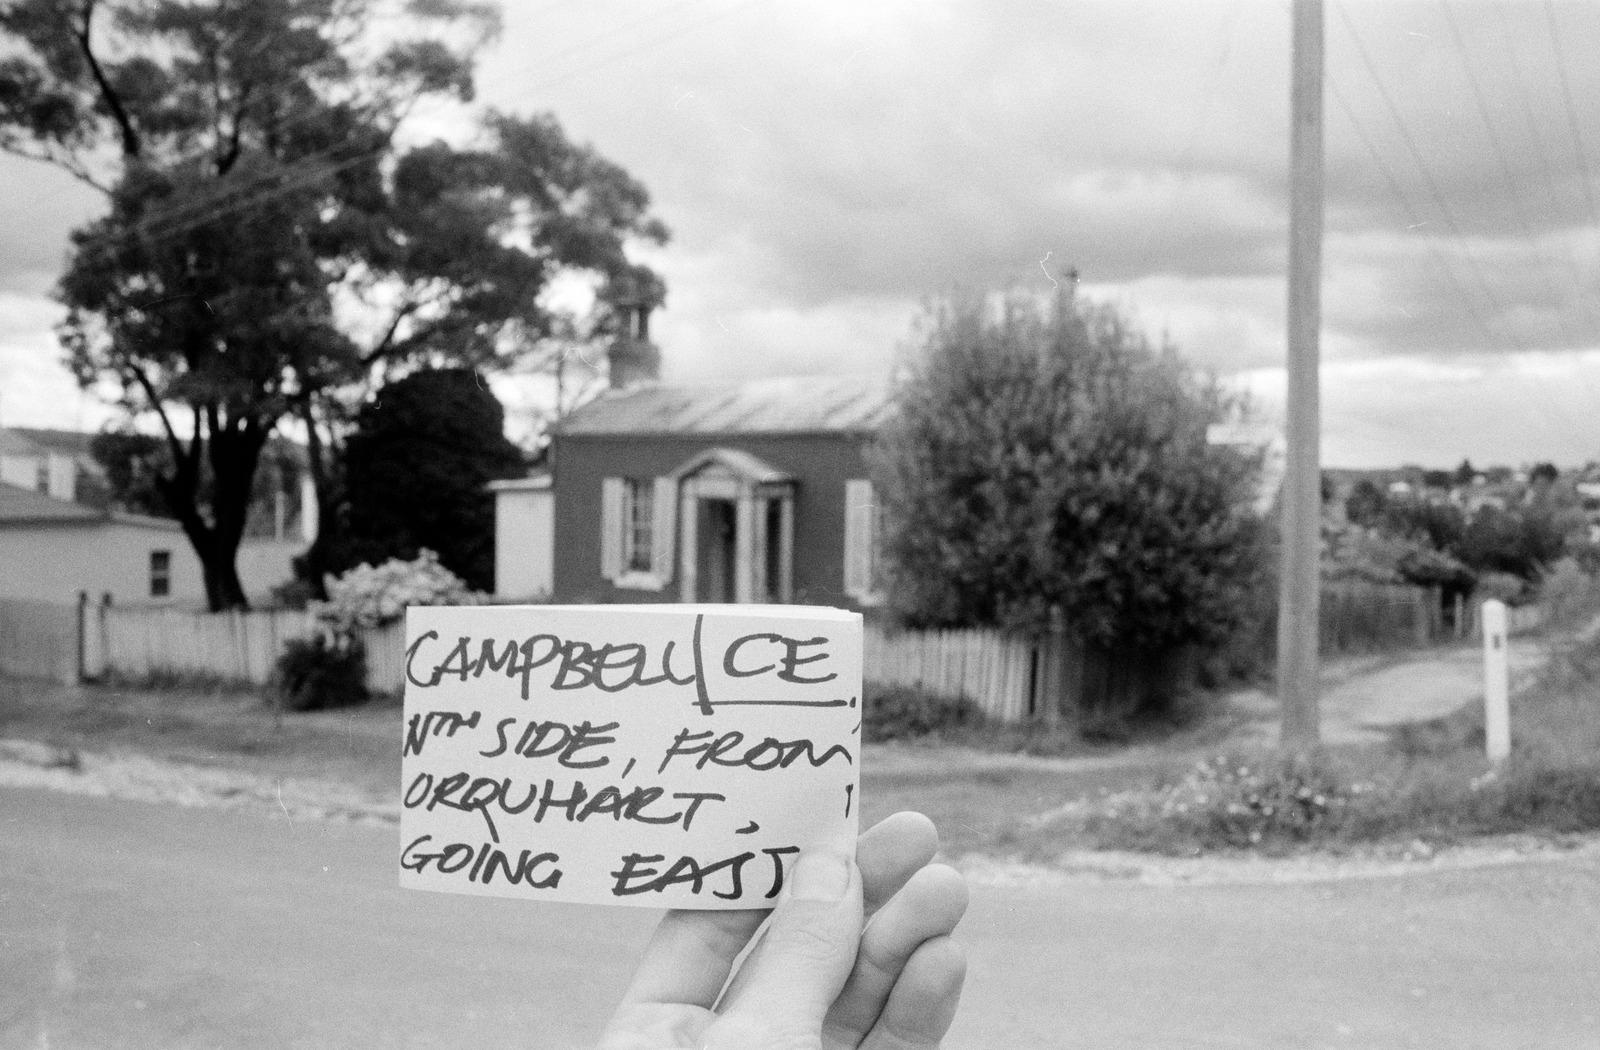 CAMPBELL | CE
NTH SIDE, FROM
ORQUHART,
GOING EAST